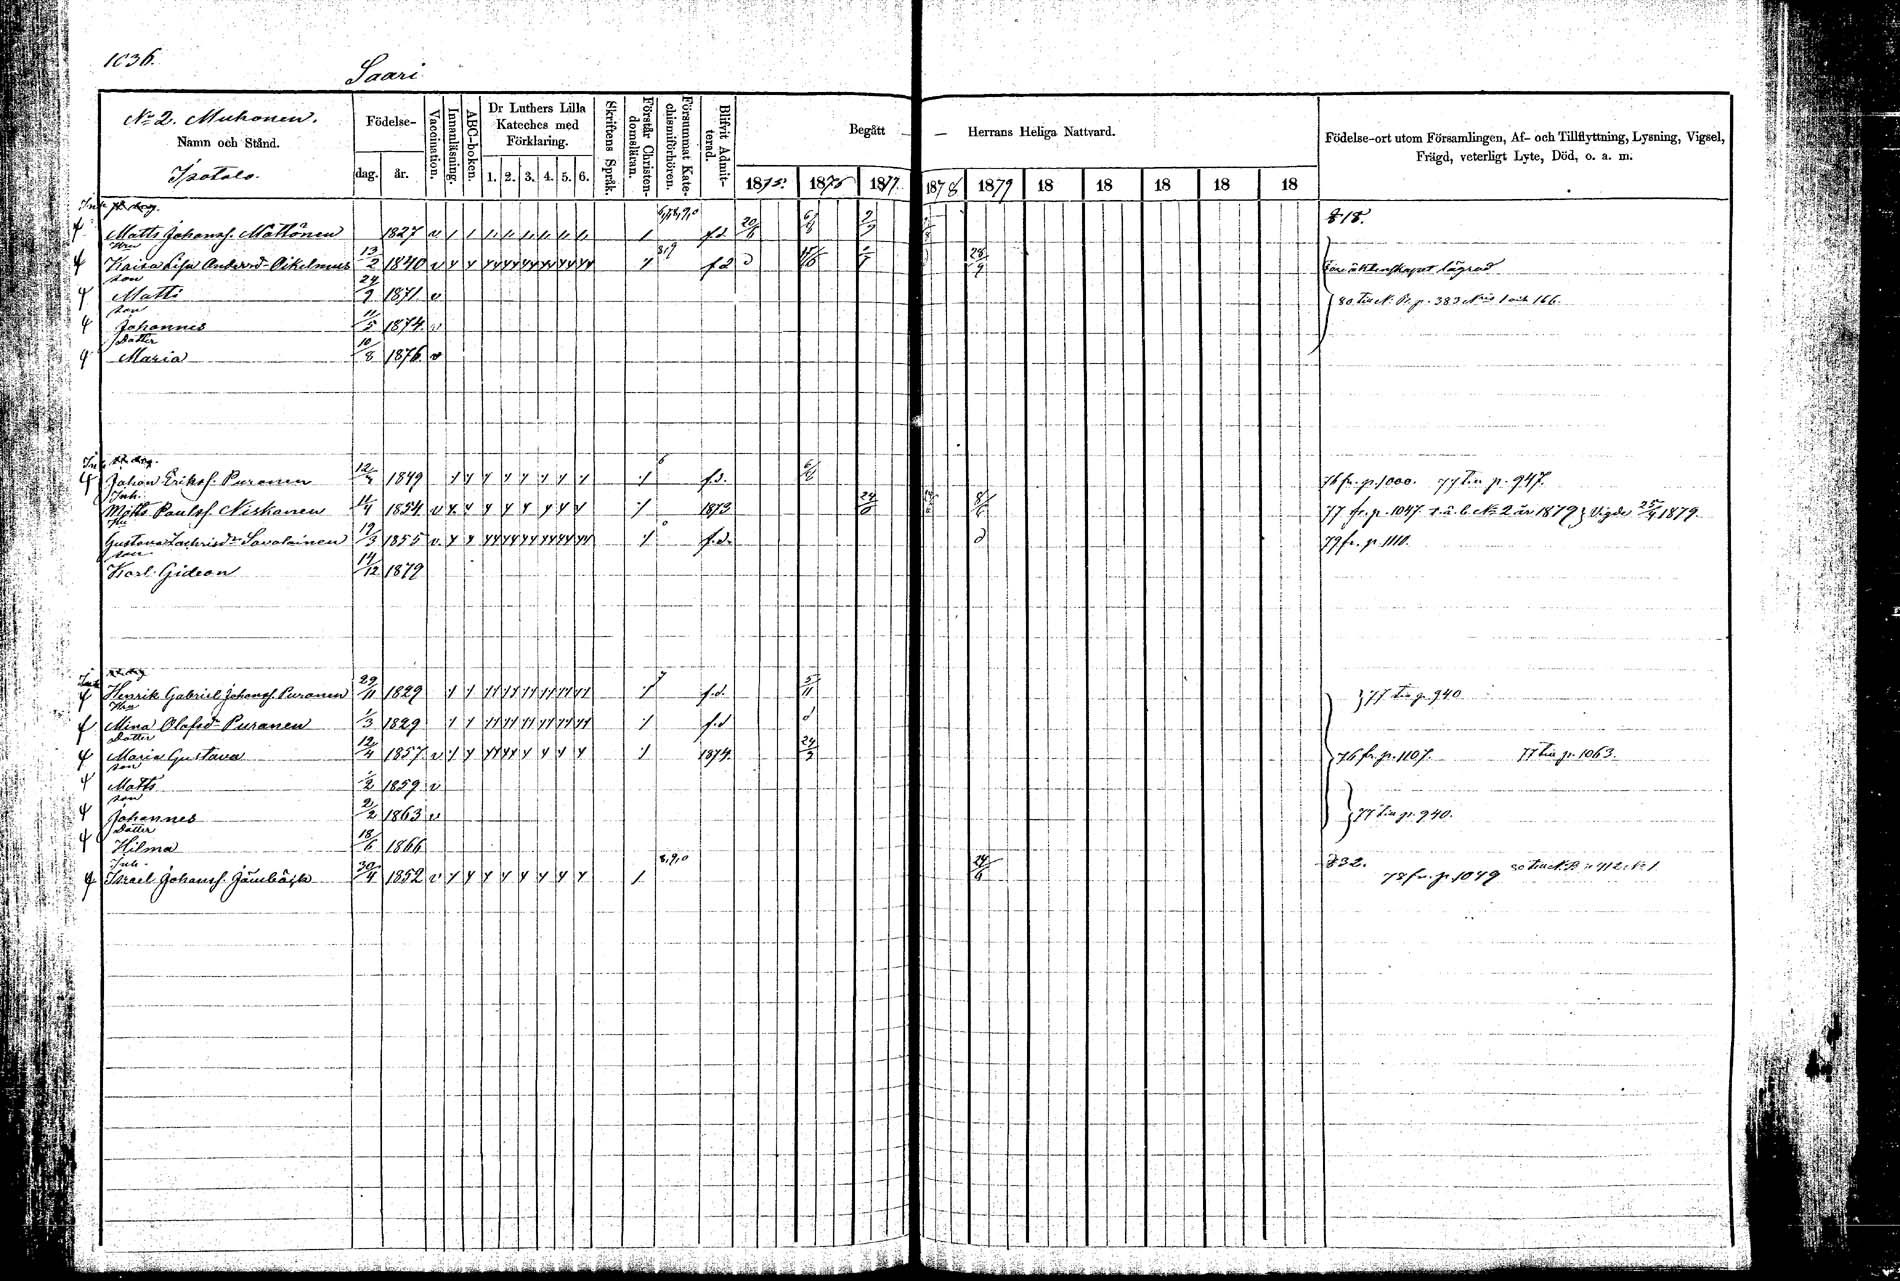 1036.
Saari
No 2. Muhonen.
Namn och Stånd.
Ipatalo.
Födelse-
dag.
år.
Vaccination.
Innanläsning.
ABC-boken.
Dr Luthers Lilla Kateches med Förklaring.
1. 2. 3. 4. 5. 6.
Skriftens Språk.
Förstår Christendomsläran.
Försummat Katechismiförhören.
Blifvit Admitterad.
Begått — — Herrans Heliga Nattvard.
1875. 1876 1877. 1878 1879 18 18 18 18 18
Födelse-ort utom Församlingen, Af- och Tillflyttning, Lysning, Vigsel, Frägd, veterligt Lyte, Död, o. a. m.
Matts Johanss. Mattönen 1827 v f.d. 20/6 818.
Hru
Kaisa Lisa Andersd- 13/2 1840 v f d 28/9 Före äktenskapet lägrad
son
Matti 24/9 1871 v 80 till N. B. p. 383 No 1 och 166.
son
Johannes 11/5 1874. v
Dotter
Maria 10/8 1876 v
Johan Erikss. Puronen 12/4 1849 f.d. 76 fr. p. 1000. 77 till p. 947.
Inh.
Matts Paulss. Niskanen 11/4 1854. v 1873 77 fr. p. 1047 l.å.b. No 2 år 1879 Vigde 25/4 1879.
Hu
Gustava Zachrisd- Savolainen 19/3 1855 v. f.d. 79 fr. p. 1110.
son
Karl Gideon 14/12 1879
Henrik Gabriel Johanss. Puranen 29/11 1829 7 f.d. 5/11 77 till p. 940
Hru
Mina Olofsd- Puranen 1/3 1829 f.d
Dotter
Maria Gustava 12/4 1857. v 1874. 76 fr. p. 1107. 77 till p. 1063.
son
Matts 1/2 1859 v
son
Johannes 2/2 1863 v 77 till p. 940.
Dotter
Hilma 18/6 1866
Inh.
Israel Johanss. Jämbäck 30/4 1852 v 8,9,0 24/6 832. 78 fr. p. 1049